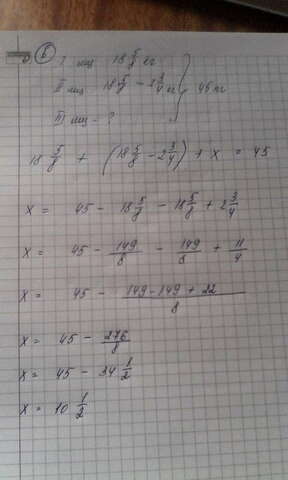 6 I ящ 18 5/8 кг
II ящ 18 5/8 - 2 3/4 кг } 45 кг
III ящ - ?
18 5/8 + (18 5/8 - 2 3/4) + x = 45
x = 45 - 18 5/8 - 18 5/8 + 2 3/4
x = 45 - 149/8 - 149/8 + 11/4
x = 45 - 149-149+22/8
x = 45 - 276/8
x = 45 - 34 1/2
x = 10 1/2